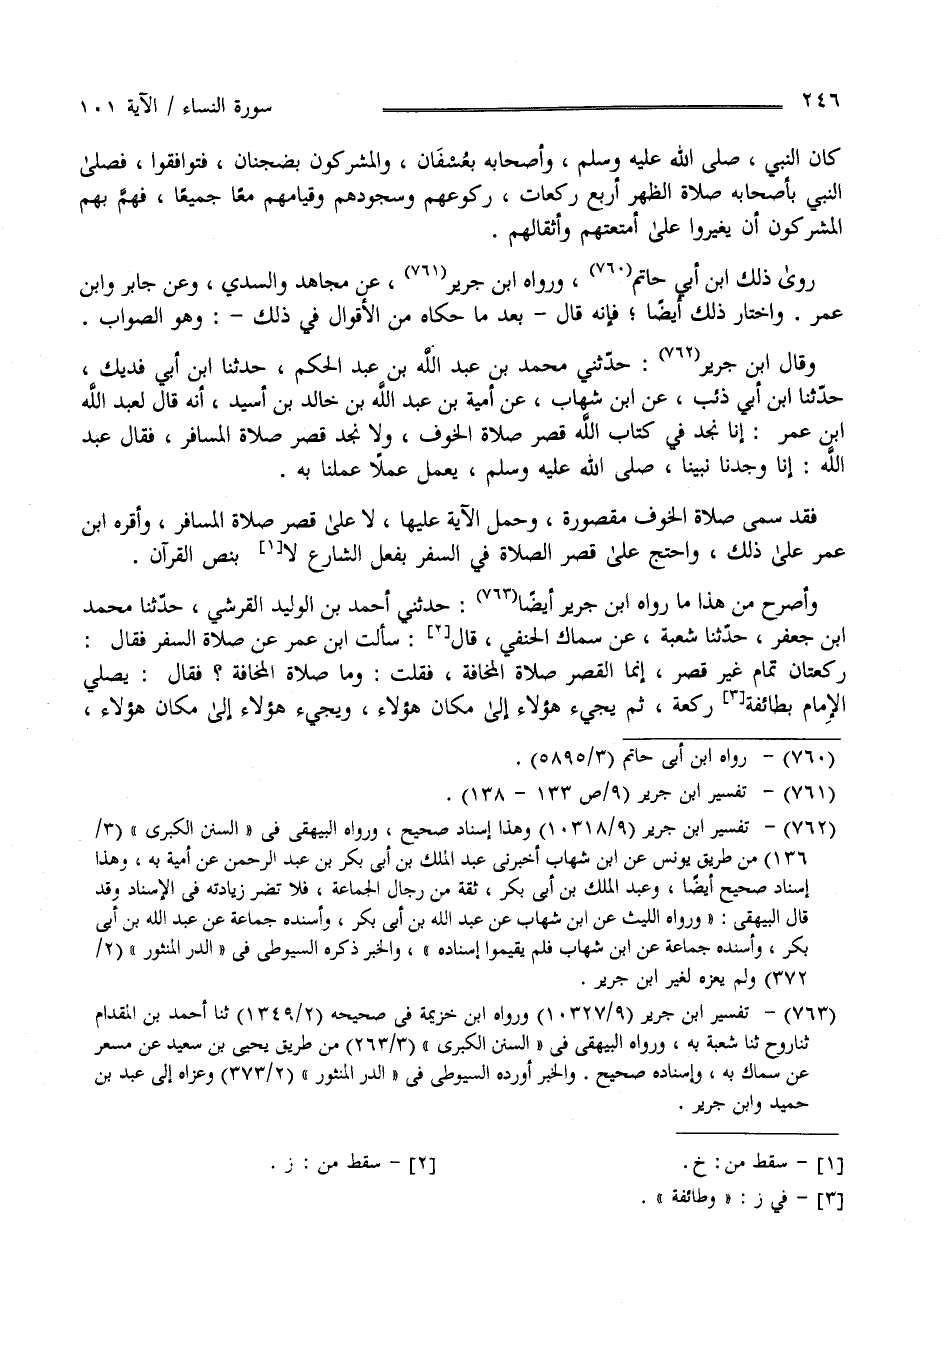 ٢٤٦ سورة النساء / الآية ١٠١
كان النبي ، صلى الله عليه وسلم ، وأصحابه بعُسْفَان ، والمشركون بضجنان ، فتوافقوا ، فصلىٰ
النبي بأصحابه صلاة الظهر أربع ركعات ، ركوعهم وسجودهم وقيامهم معًا جميعًا ، فهمَّ بهم
المشركون أن يغيروا علىٰ أمتعتهم وأثقالهم .
روىٰ ذلك ابن أبي حاتم(٧٦٠) ، ورواه ابن جرير(٧٦١) ، عن مجاهد والسدي ، وعن جابر وابن
عمر . واختار ذلك أيضًا ؛ فإنه قال - بعد ما حكاه من الأقوال في ذلك - : وهو الصواب .
وقال ابن جرير(٧٦٢) : حدّثني محمد بن عبد اللَّه بن عبد الحكم ، حدثنا ابن أبي فديك ،
حدّثنا ابن أبي ذئب ، عن ابن شهاب ، عن أمية بن عبد اللَّه بن خالد بن أسيد ، أنه قال لعبد اللَّه
ابن عمر : إنا نجد في كتاب اللَّه قصر صلاة الخوف ، ولا نجد قصر صلاة المسافر ، فقال عبد
اللَّه : إنا وجدنا نبينا ، صلى الله عليه وسلم ، يعمل عملًا عملنا به .
فقد سمى صلاة الخوف مقصورة ، وحمل الآية عليها ، لا علىٰ قصر صلاة المسافر ، وأقره ابن
عمر علىٰ ذلك ، واحتج علىٰ قصر الصلاة في السفر بفعل الشارع لا[١] بنص القرآن .
وأصرح من هذا ما رواه ابن جرير أيضًا(٧٦٣) : حدثني أحمد بن الوليد القرشي ، حدّثنا محمد
ابن جعفر ، حدّثنا شعبة ، عن سماك الحنفي ، قال[٢] : سألت ابن عمر عن صلاة السفر فقال :
ركعتان تمام غير قصر ، إنما القصر صلاة المخافة ، فقلت : وما صلاة المخافة ؟ فقال : يصلي
الإمام بطائفة[٣] ركعة ، ثم يجيء هؤلاء إلىٰ مكان هؤلاء ، ويجيء هؤلاء إلىٰ مكان هؤلاء ،
(٧٦٠) - رواه ابن أبى حاتم (٥٨٩٥/٣) .
(٧٦١) - تفسير ابن جرير (٩/ص ١٣٣ - ١٣٨) .
(٧٦٢) - تفسير ابن جرير (١٠٣١٨/٩) وهذا إسناد صحيح ، ورواه البيهقى فى « السنن الكبرى » (٣/
١٣٦) من طريق يونس عن ابن شهاب أخبرنى عبد الملك بن أبى بكر بن عبد الرحمن عن أمية به ، وهذا
إسناد صحيح أيضًا ، وعبد الملك بن أبى بكر ، ثقة من رجال الجماعة ، فلا تضر زيادته فى الإسناد وقد
قال البيهقى : « ورواه الليث عن ابن شهاب عن عبد الله بن أبى بكر ، وأسنده جماعة عن عبد الله بن أبى
بكر ، وأسنده جماعة عن ابن شهاب فلم يقيموا إسناده » ، والخبر ذكره السيوطى فى « الدر المنثور » (٢/
٣٧٢) ولم يعزه لغير ابن جرير .
(٧٦٣) - تفسير ابن جرير (١٠٣٢٧/٩) ورواه ابن خزيمة فى صحيحه (١٣٤٩/٢) ثنا أحمد بن المقدام
ثناروح ثنا شعبة به ، ورواه البيهقى فى « السنن الكبرى » (٢٦٣/٣) من طريق يحيى بن سعيد عن مسعر
عن سماك به ، وإسناده صحيح . والخبر أورده السيوطى فى « الدر المنثور » (٣٧٣/٢) وعزاه إلى عبد بن
حميد وابن جرير .
[١] - سقط من : خ. [٢] - سقط من : ز .
[٣] - في ز : « وطائفة » .